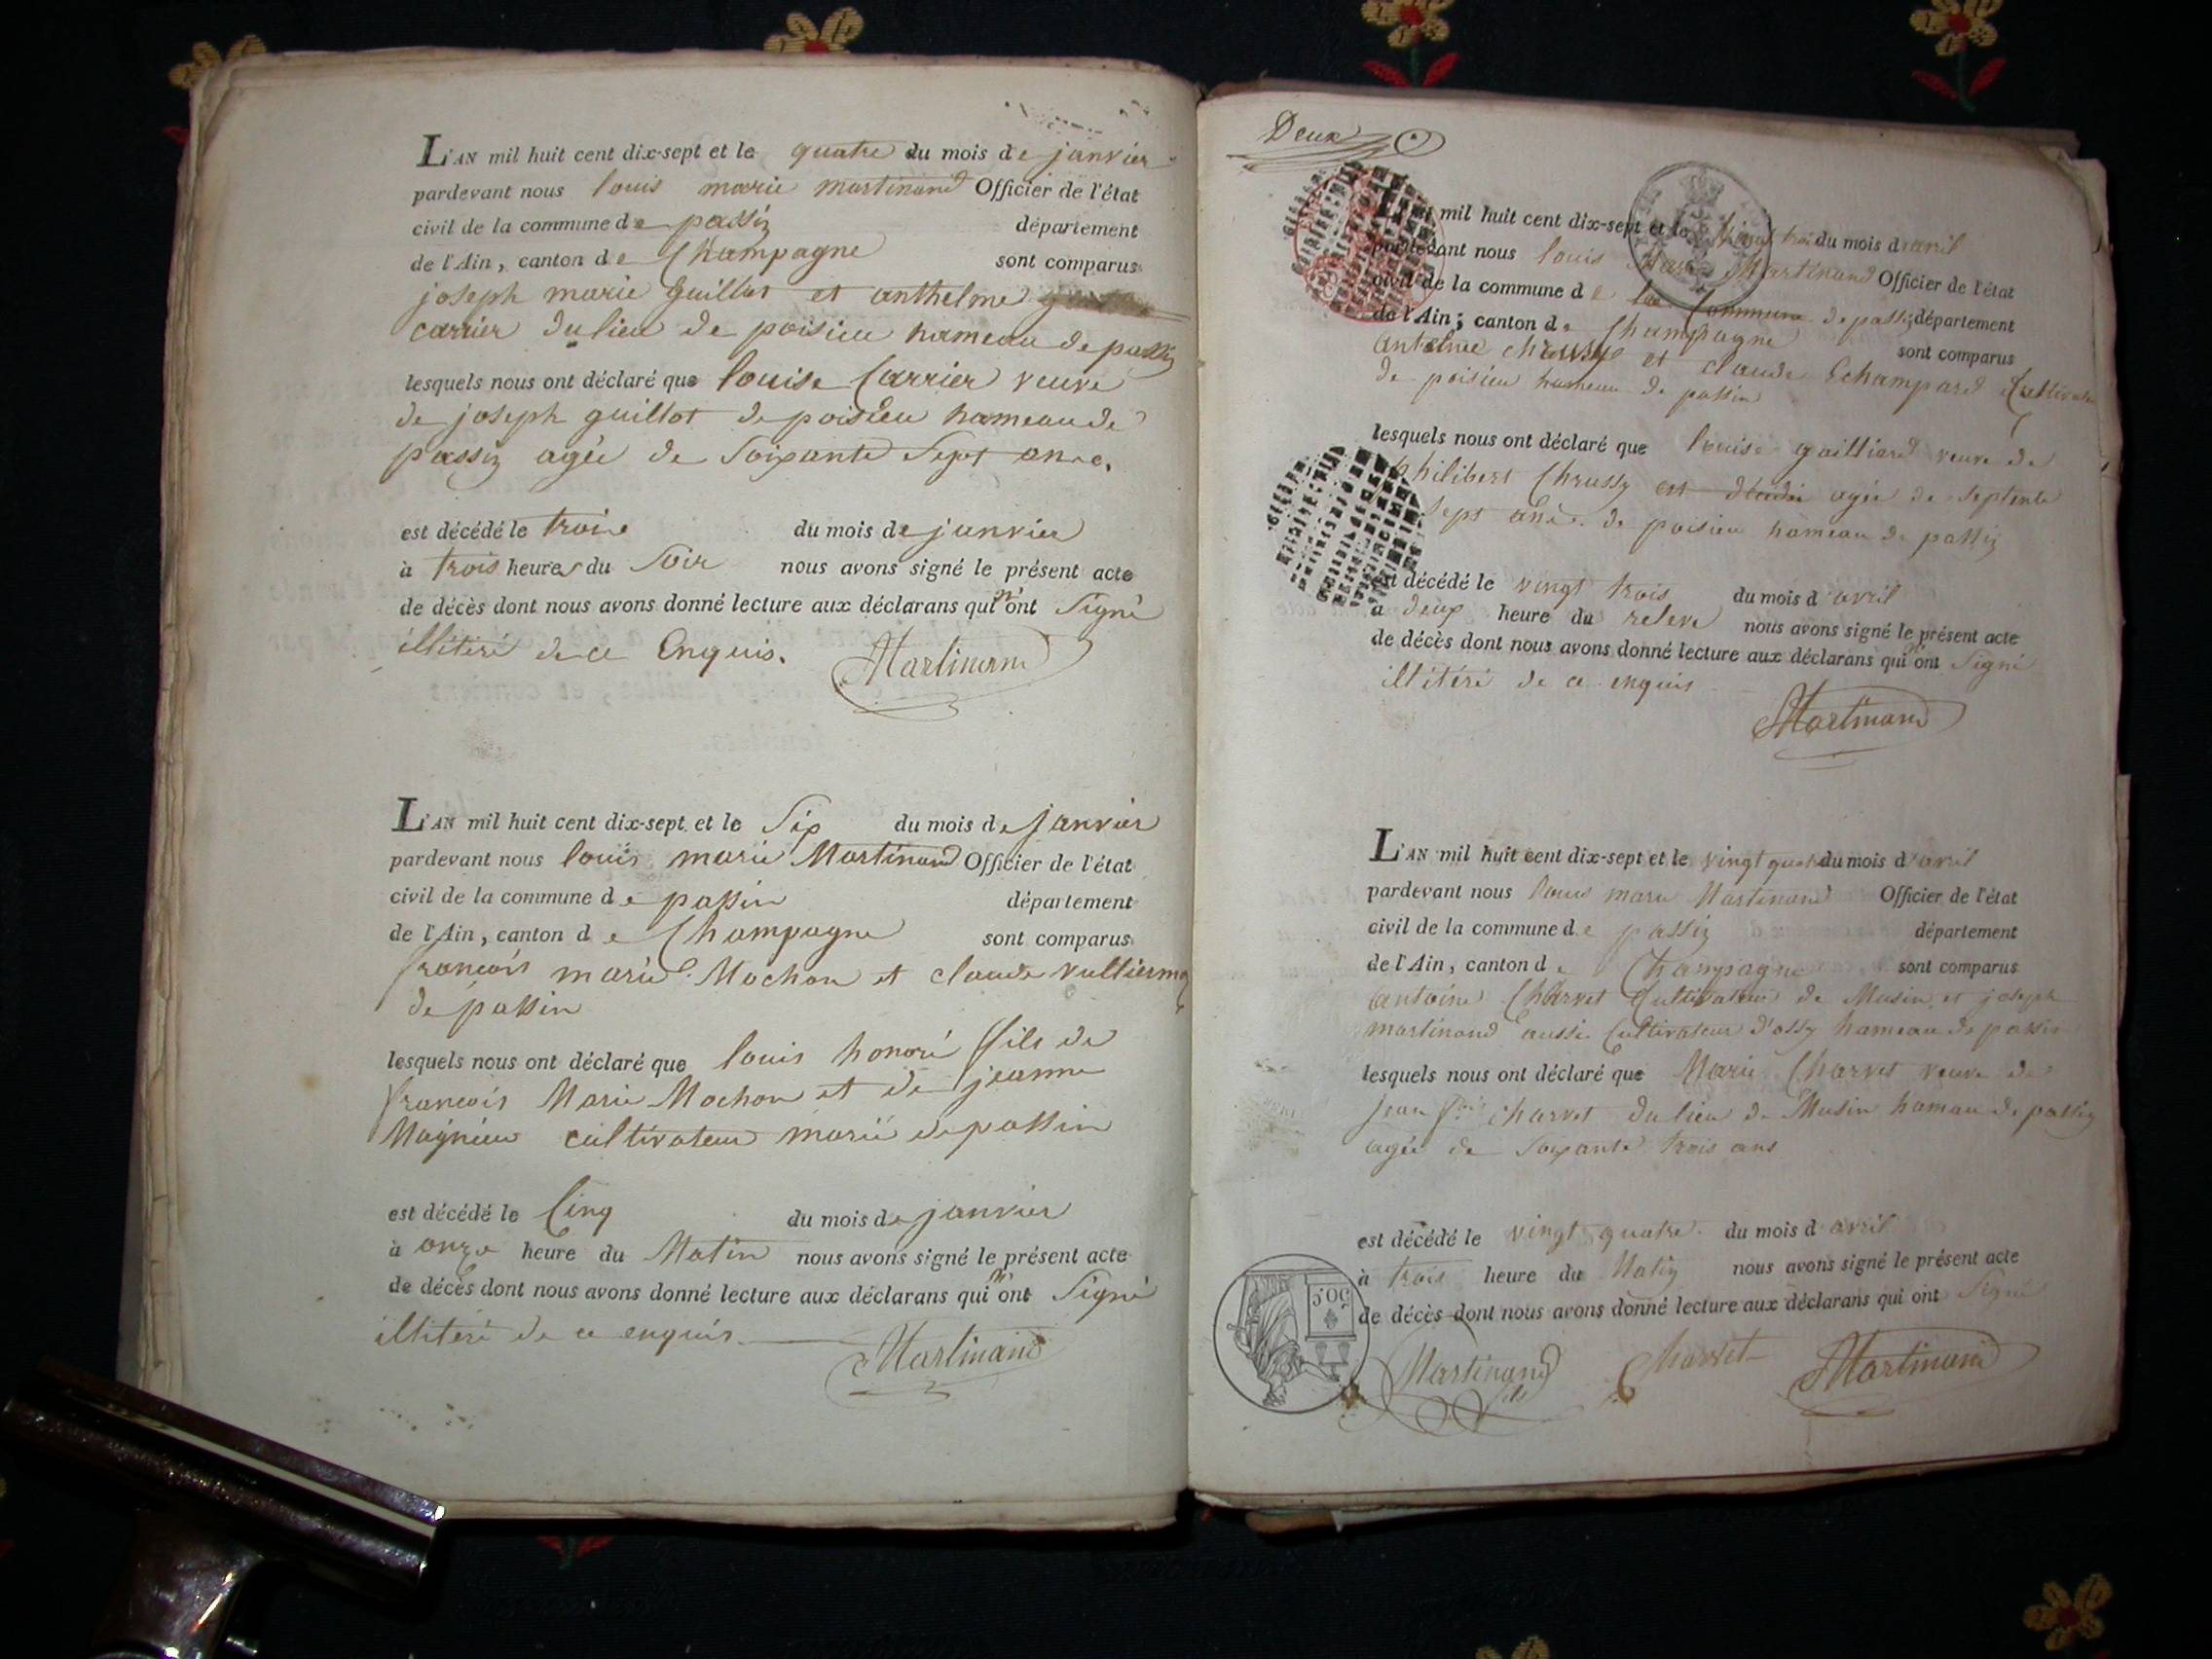 L'AN mil huit cent dix-sept et le quatre du mois de janvier
pardevant nous louis marie martinand Officier de l'état
civil de la commune de passin département
de l'Ain, canton de Champagne sont comparus
joseph marie guillot et anthelme
carrier du lieu de poisieu hameau de passin
lesquels nous ont déclaré que louise Carrier veuve
de joseph guillot de poisieu hameau de
passin agée de Soixante Sept ans.
est décédé le trois du mois de janvier
à trois heures du Soir nous avons signé le présent acte
de décès dont nous avons donné lecture aux déclarans qui n'ont Signé
illitéré de ce Enquis. Martinand
L'AN mil huit cent dix-sept et le Six du mois de janvier
pardevant nous louis marie Martinand Officier de l'état
civil de la commune de passin département
de l'Ain, canton de Champagne sont comparus
françois marie Mochon et claude
de passin
lesquels nous ont déclaré que louis honoré fils de
françois Marie Mochon et de jeanne
Magnieu cultivateur marié de passin
est décédé le Cinq du mois de janvier
à onze heure du Matin nous avons signé le présent acte
de décès dont nous avons donné lecture aux déclarans qui n'ont Signé
illitéré de ce enquis. Martinand
Deux
L'AN mil huit cent dix-sept et le vingt trois du mois d'avril
pardevant nous louis Marie Martinand Officier de l'état
civil de la commune de la Commune de passin département
de l'Ain; canton de Champagne sont comparus
antelme et claude Echampard Cultivateur
de poisieu hameau de passin
lesquels nous ont déclaré que louise veuve de
philibert Chrussy est agée de septente
sept ans de poisieu hameau de passin
est décédé le vingt trois du mois d'avril
à deux heure du releve nous avons signé le présent acte
de décès dont nous avons donné lecture aux déclarans qui n'ont Signé
illitéré de ce enquis
Martinand
L'AN mil huit cent dix-sept et le vingt quatre du mois d'avril
pardevant nous louis marie Martinand Officier de l'état
civil de la commune de passin département
de l'Ain, canton de Champagne sont comparus
antoine Charvet Cultivateur de Musin et joseph
martinand aussi Cultivateur d'ossy hameau de passin
lesquels nous ont déclaré que Marie Charvet veuve de
jean fçois charvet du lieu de Musin hameau de passin
agée de Soixante trois ans
est décédé le vingt quatre du mois d'avril
à trois heure du Matin nous avons signé le présent acte
de décès dont nous avons donné lecture aux déclarans qui ont Signé
50 C
Martinand fils Charvet Martinand